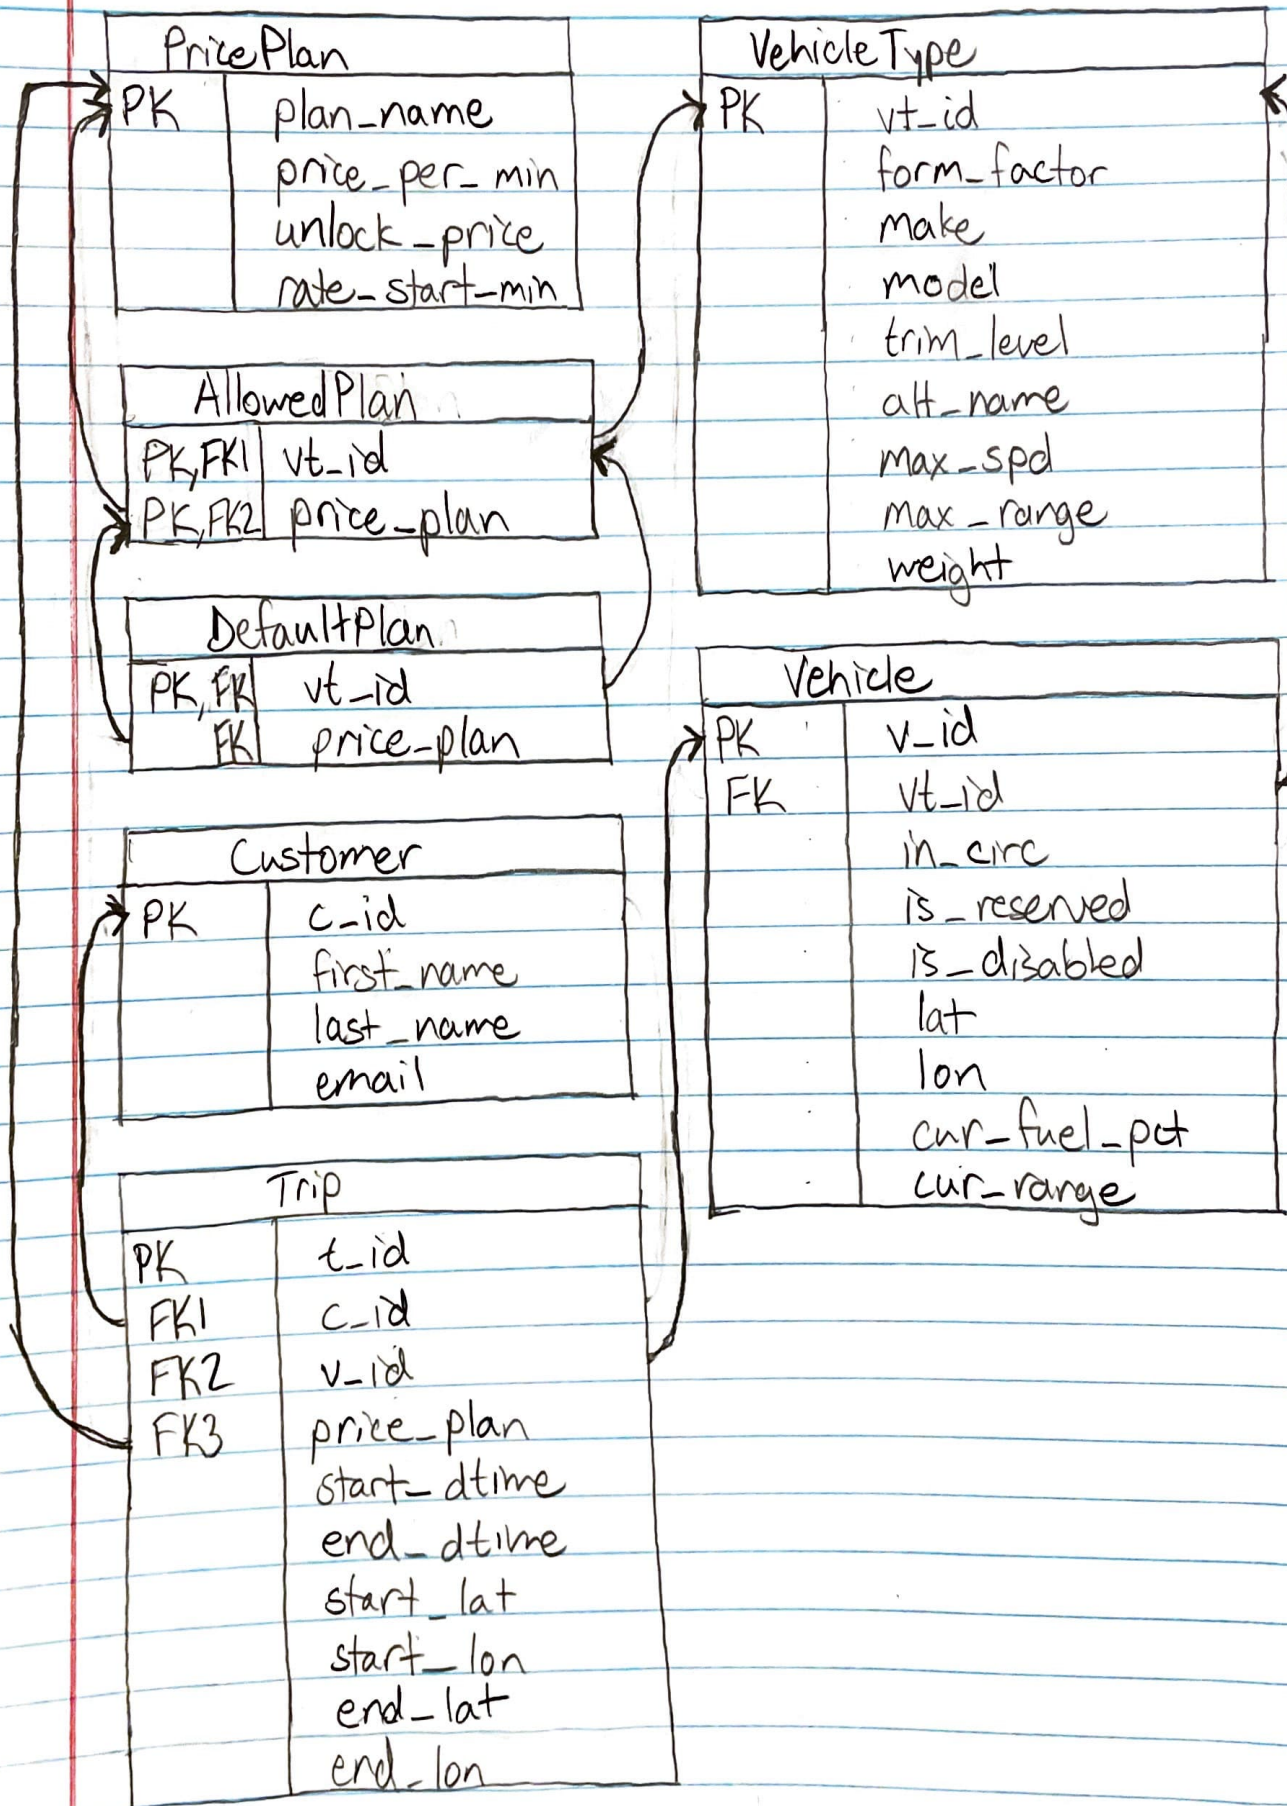 PricePlan
PK plan_name
price_per_min
unlock_price
rate_start_min
AllowedPlan
PK,FK1 vt_id
PK,FK2 price_plan
DefaultPlan
PK,FK vt_id
FK price_plan
Customer
PK c_id
first_name
last_name
email
Trip
PK t_id
FK1 c_id
FK2 v_id
FK3 price_plan
start_dtime
end_dtime
start_lat
start_lon
end_lat
end_lon
VehicleType
PK vt_id
form_factor
make
model
trim_level
alt_name
max_spd
max_range
weight
Vehicle
PK v_id
FK vt_id
in_circ
is_reserved
is_disabled
lat
lon
cur_fuel_pct
cur_range